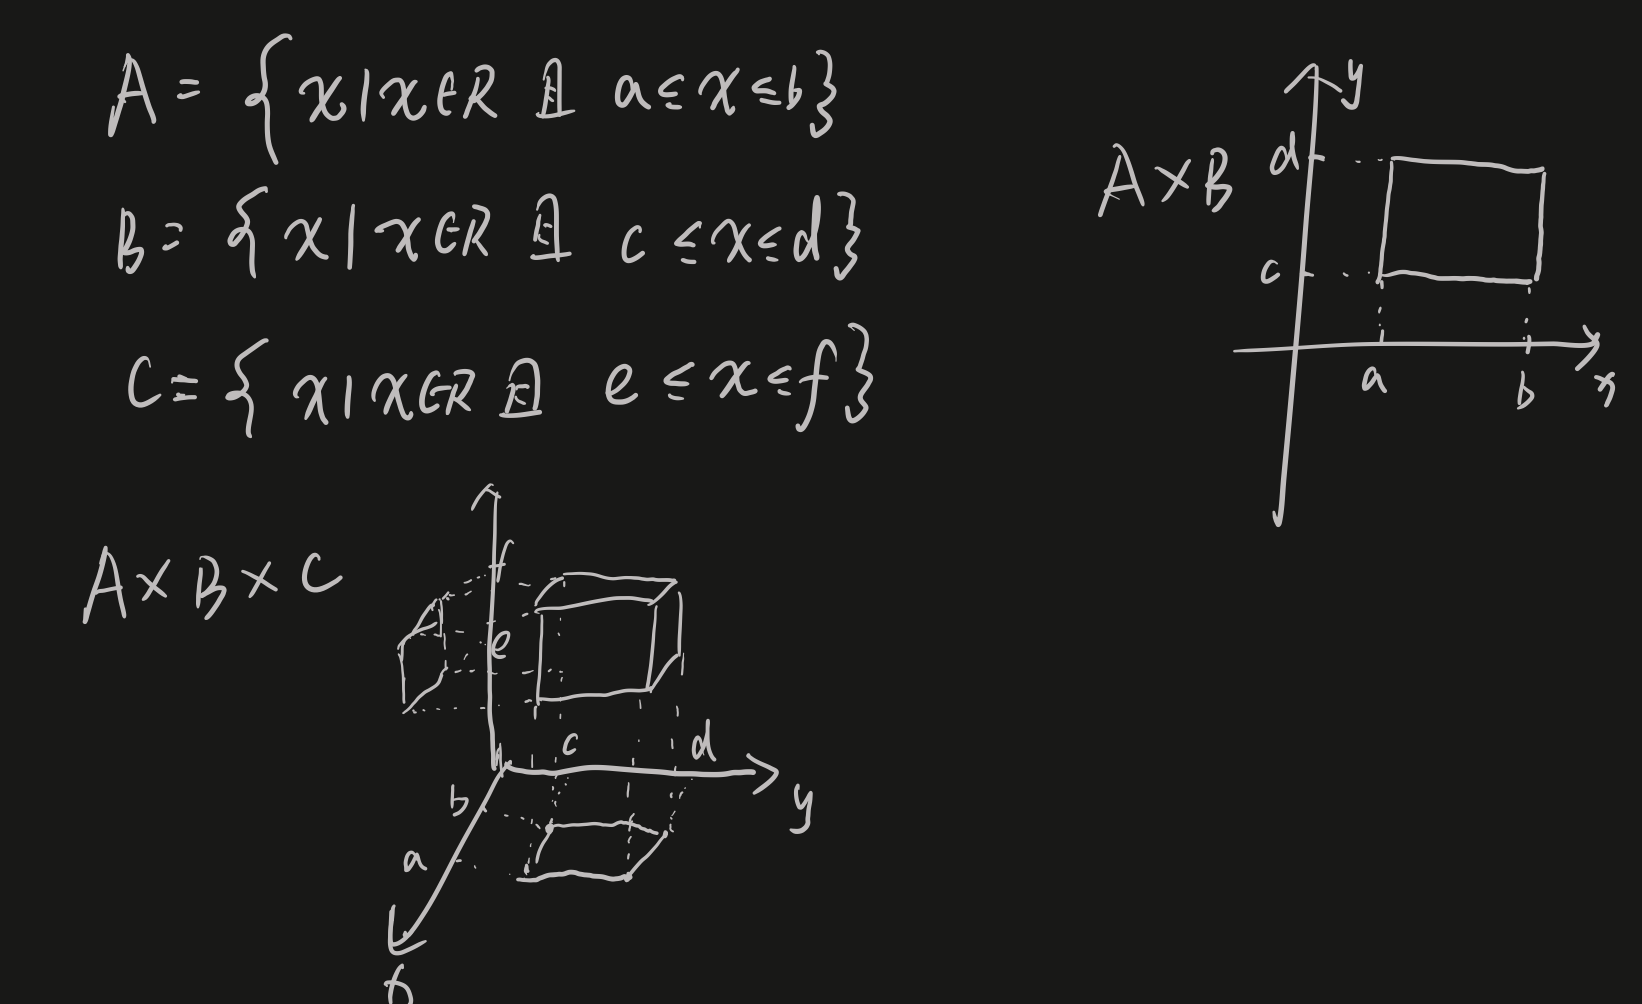 A = { x | x ∈ R 且 a ≤ x ≤ b }
B = { x | x ∈ R 且 c ≤ x ≤ d }
C = { x | x ∈ R 且 e ≤ x ≤ f }
A × B
y
d
c
a
b
x
A × B × C
f
e
c
d
b
a
y